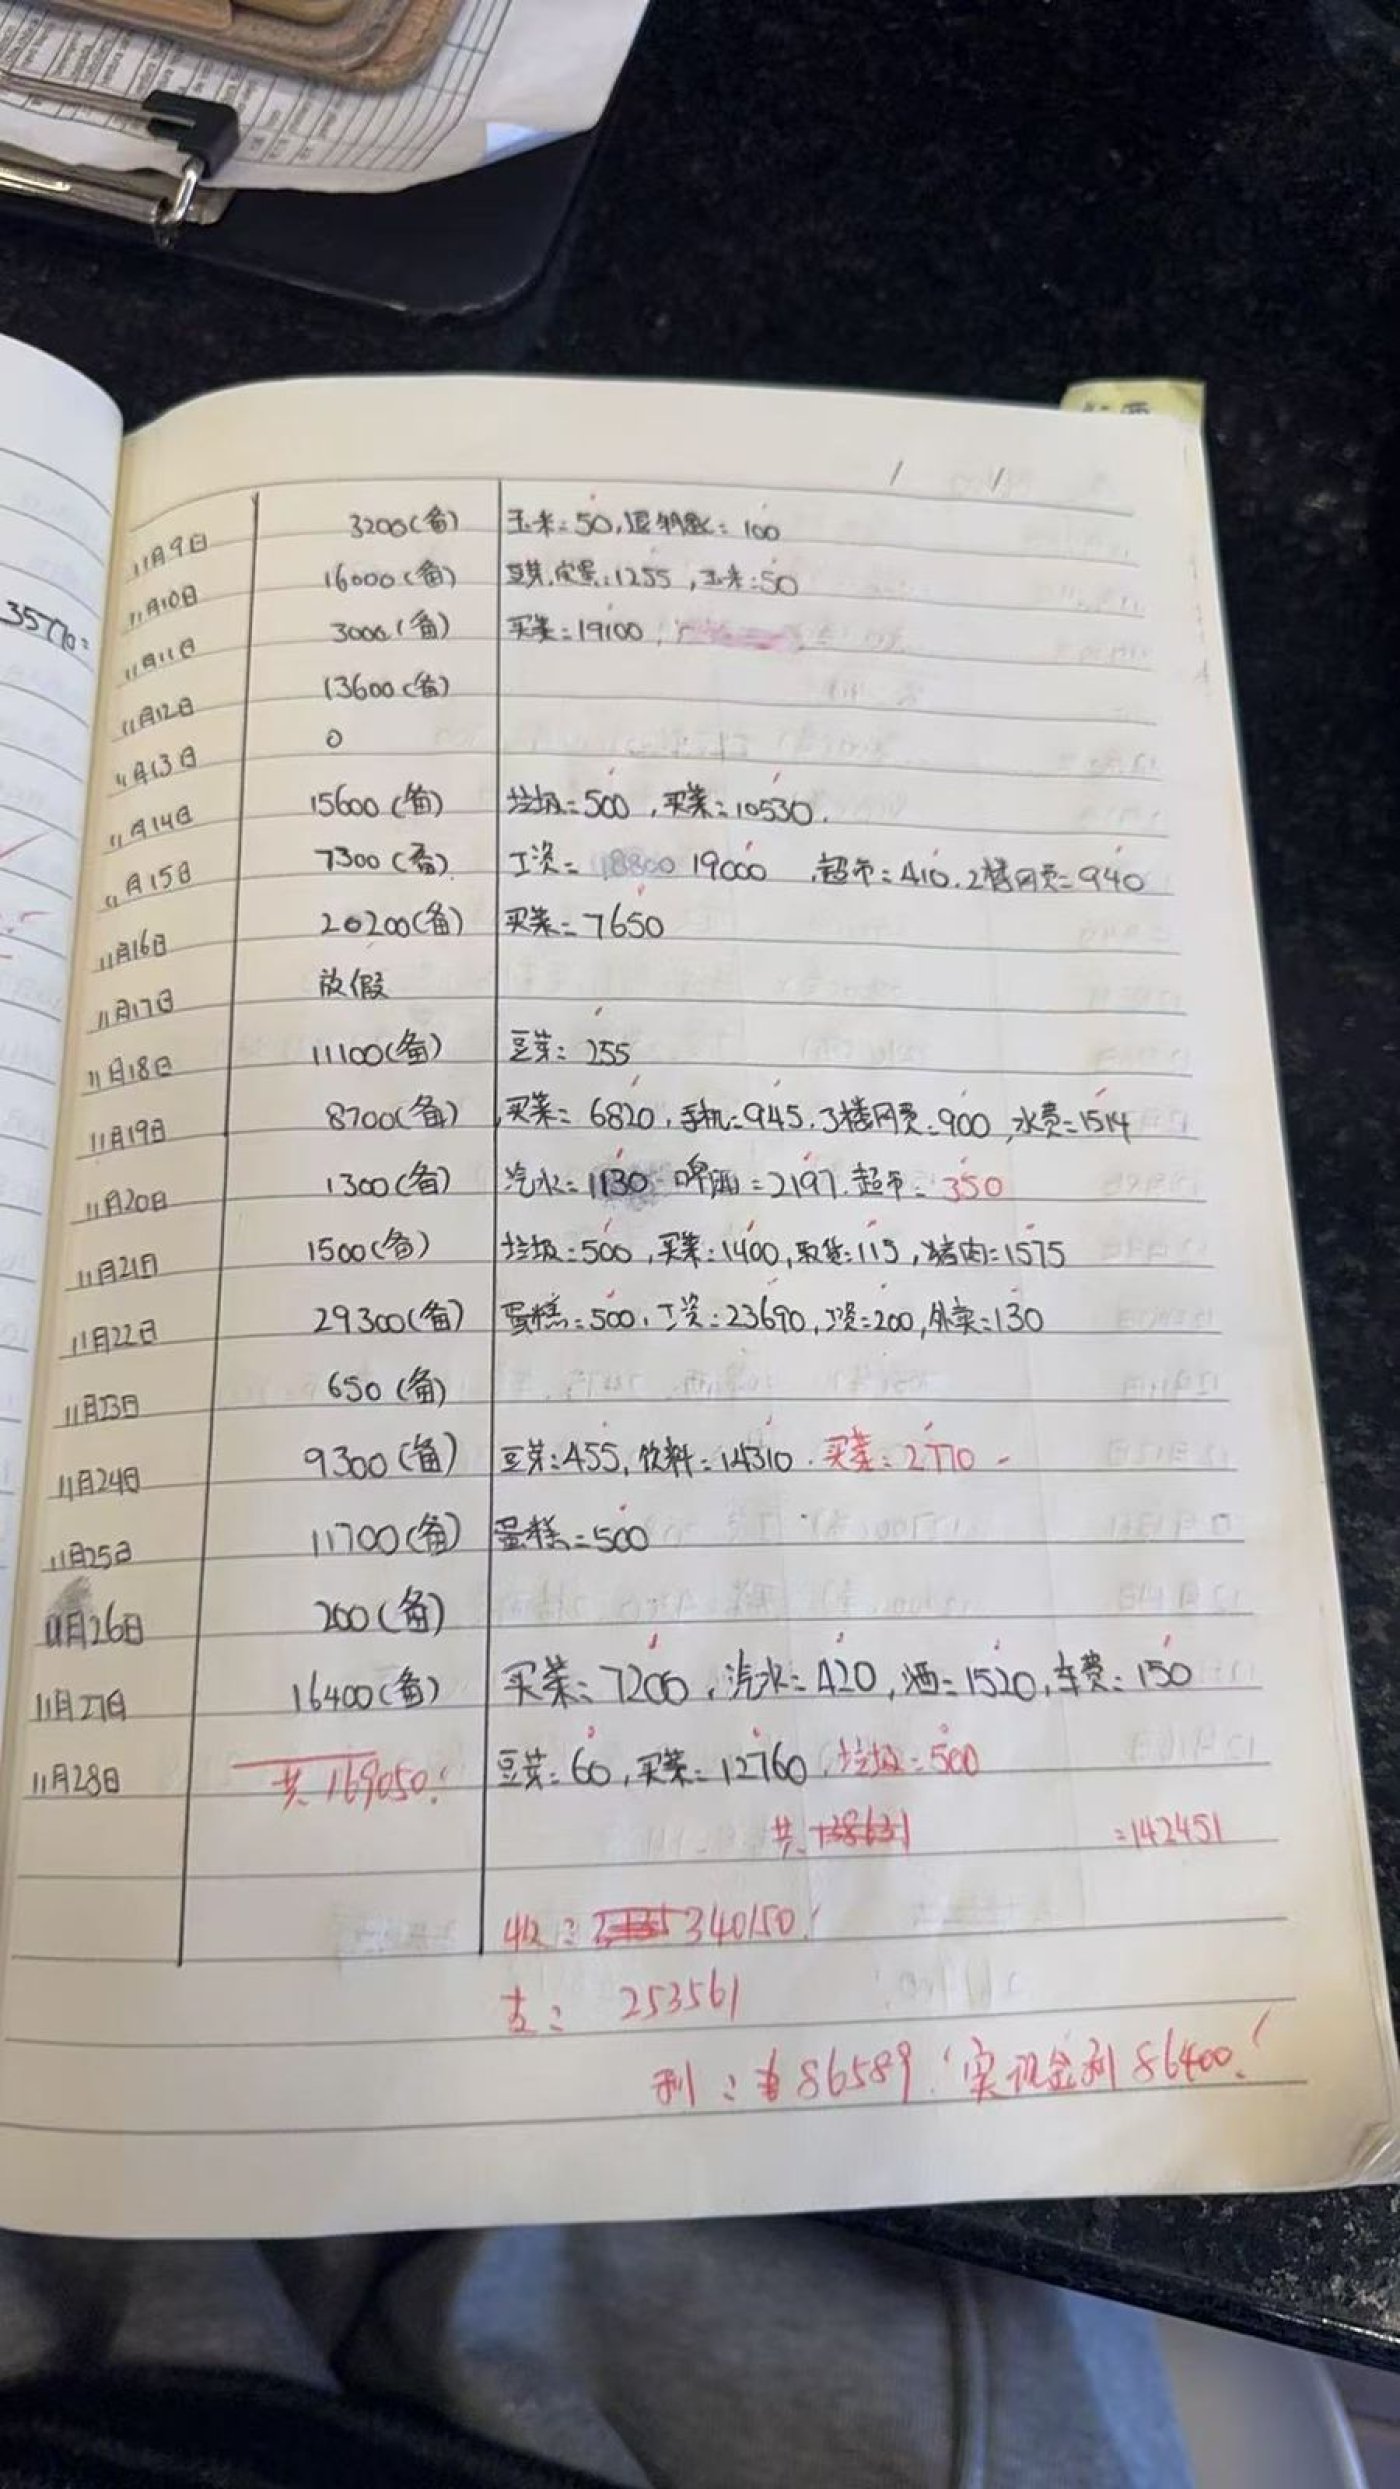 35770=
11月9日 3200(备) 玉米=50,退钥匙=100
11月10日 16000(备) 豆芽,定景:1255,玉米=50
11月11日 3000(备) 买菜=19100
11月12日 13600(备)
11月13日 0
11月14日 15600(备) 垃圾=500,买菜=10530.
11月15日 7300(备) 工资= 18800 19000 .超市=410.2楼网费=940
11月16日 20200(备) 买菜=7650
11月17日 放假
11月18日 11100(备) 豆芽=255
11月19日 8700(备) 买菜=6820,手机=945.3楼网费=900,水费=1514
11月20日 1300(备) 汽水=1130 啤酒=2197.超市=350
11月21日 1500(备) 垃圾=500,买菜=1400,取货=115,猪肉=1575
11月22日 29300(备) 蛋糕=500,工资=23690,工资=200,外卖=130
11月23日 650(备)
11月24日 9300(备) 豆芽=455,饮料=14310.买菜=2770
11月25日 11700(备) 蛋糕=500
11月26日 200(备)
11月27日 16400(备) 买菜=7200,汽水=420,酒=1520,车费=150
11月28日 共169050! 豆芽=60,买菜=12760,垃圾=500
共138631 =142451
收:340150!
支:253561
利:86589!实现金利86400!